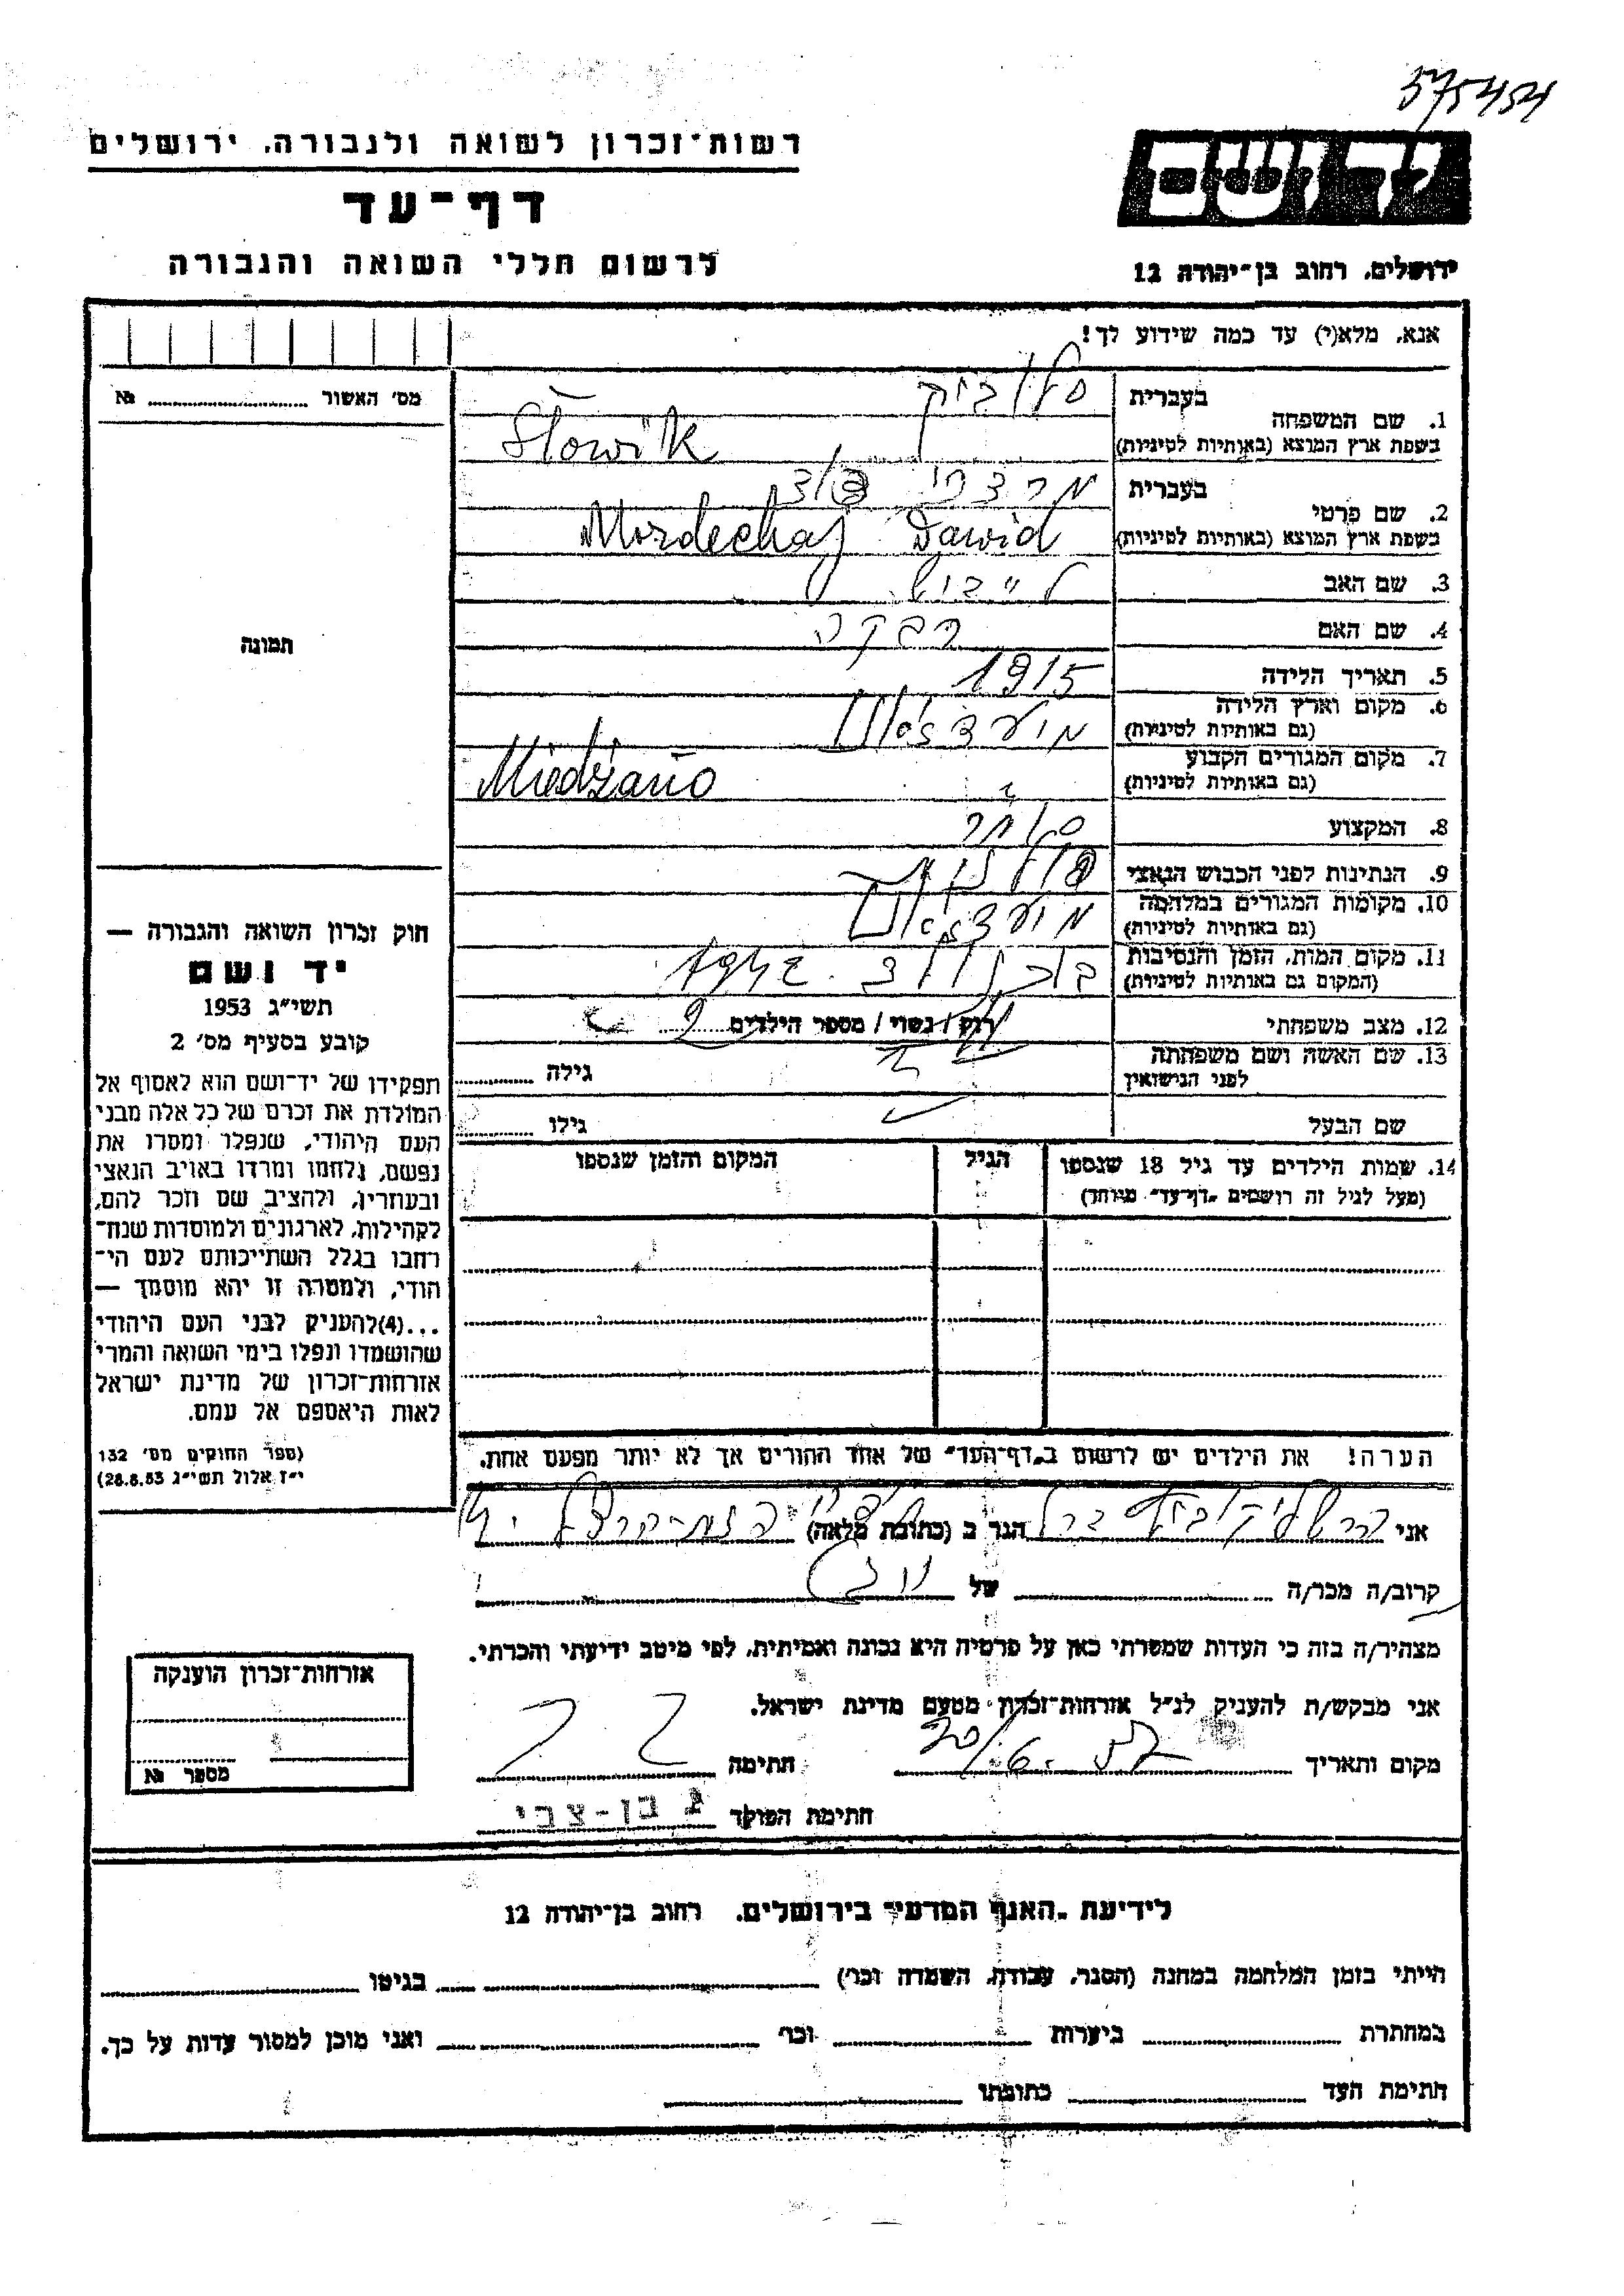 575454
יד ושם
רשות-זכרון לשואה ולגבורה, ירושלים
דף-עד
לרשום חללי השואה והגבורה
ירושלים, רחוב בן-יהודה 12
אנא, מלא(י) עד כמה שידוע לך!
מס' האשור №
1. שם המשפחה
בעברית סלוביק
בשפת ארץ המוצא (באותיות לטיניות) Słowik
2. שם פרטי
בעברית מרדכי דוד
בשפת ארץ המוצא (באותיות לטיניות) Mordechaj Dawid
3. שם האב לייבוש
4. שם האם רבקה
5. תאריך הלידה 1915
6. מקום וארץ הלידה
(גם באותיות לטיניות)
7. מקום המגורים הקבוע
(גם באותיות לטיניות) Miedżano
8. המקצוע סוחר
9. הנתינות לפני הכבוש הנאצי
10. מקומות המגורים במלחמה
(גם באותיות לטיניות)
11. מקום המות, הזמן והנסיבות
(המקום גם באותיות לטיניות)
12. מצב משפחתי רוק / נשוי / מספר הילדים
13. שם האשה ושם משפחתה
לפני הנישואין
גילה
שם הבעל גילו
14. שמות הילדים עד גיל 18 שנספו
(מעל לגיל זה רושמים "דף-עד" מיוחד)
הגיל
המקום והזמן שנספו
הערה! את הילדים יש לרשום ב"דף-העד" של אחד ההורים אך לא יותר מפעם אחת.
תמונה
חוק זכרון השואה והגבורה —
יד ושם
תשי"ג 1953
קובע בסעיף מס' 2
תפקידו של יד-ושם הוא לאסוף אל
המולדת את זכרם של כל אלה מבני
העם היהודי, שנפלו ומסרו את
נפשם, נלחמו ומרדו באויב הנאצי
ובעוזריו, ולהציב שם וזכר להם,
לקהילות, לארגונים ולמוסדות שנח-
רבו בגלל השתייכותם לעם הי-
הודי, ולמטרה זו יהא מוסמך —
...(4)להעניק לבני העם היהודי
שהושמדו ונפלו בימי השואה והמרי
אזרחות-זכרון של מדינת ישראל
לאות היאספם אל עמם.
(ספר החוקים מס' 132
י"ז אלול תשי"ג 28.8.53)
אני הגר ב (כתובת מלאה)
קרוב/ה מכר/ה של
מצהיר/ה בזה כי העדות שמסרתי כאן על פרטיה היא נכונה ואמיתית, לפי מיטב ידיעתי והכרתי.
אני מבקש/ת להעניק לנ"ל אזרחות-זכרון מטעם מדינת ישראל.
מקום ותאריך חתימה
חתימת הפוקד בן-צבי
אזרחות-זכרון הוענקה
מספר №
לידיעת "האגף המדעי" בירושלים, רחוב בן-יהודה 12
הייתי בזמן המלחמה במחנה (הסגר, עבודה, השמדה וכו') בגיטו
במחתרת ביערות וכו' ואני מוכן למסור עדות על כך.
חתימת העד כתובתו